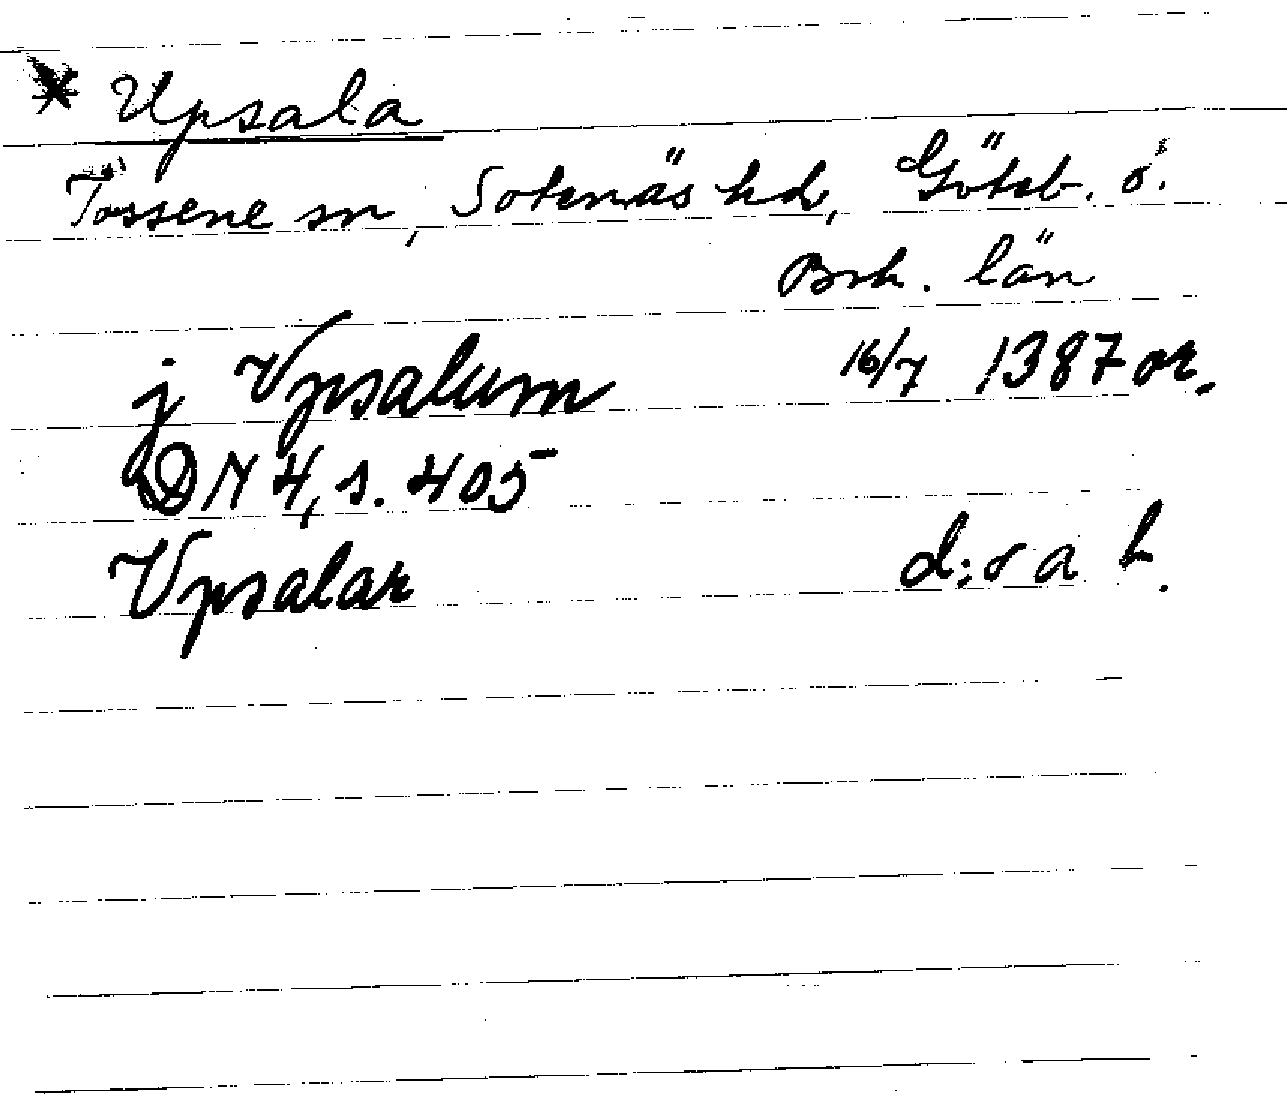 * Upsala
Tossene sn, Sotenäs hd, Göteb. o.
Boh. län
j Vpsalum 16/7 1387 or.
DN 4, s. 405
Vpsalar d:o a h.